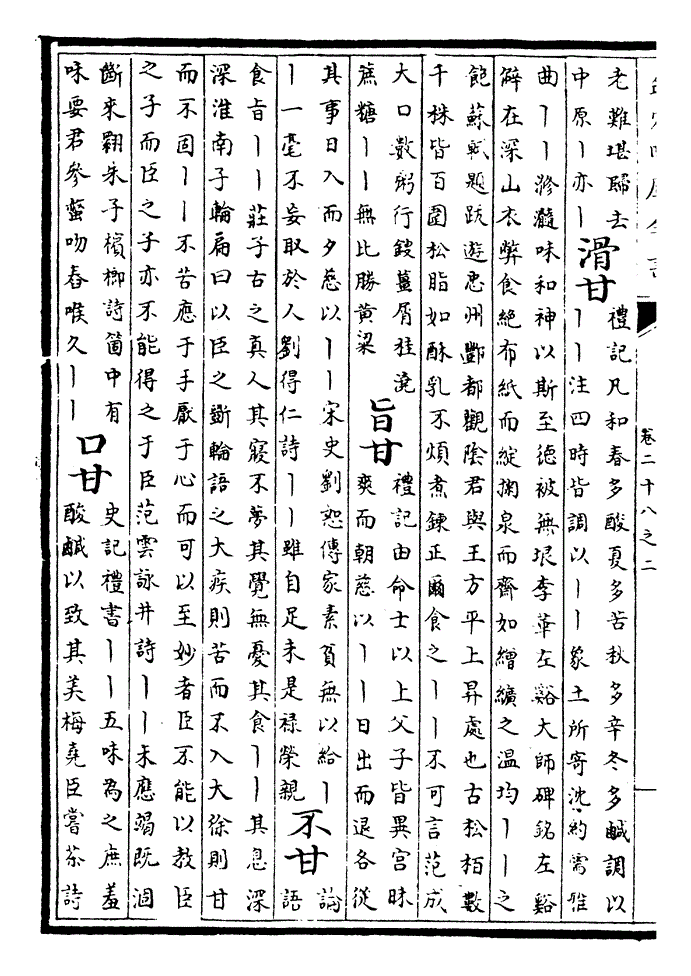 卷二十八之二
老難堪歸去
中原丨亦丨
滑甘
禮記凡和春多酸夏多苦秋多辛冬多鹹調以
丨丨注四時皆調以丨丨象土所寄沈約需雅
曲丨丨滲瀡味和神以斯至德被無垠李華左谿大師碑銘左谿
解在深山衣弊食絕布紙而綻掬泉而齋如繒纊之溫均丨丨之
飽蘇軾題跋遊忠州酆都觀陰君與王方平上昇處也古松柏數
千株皆百圍松脂如酥乳不煩煮鍊正爾食之丨丨不可言范成
大口數粥行鎪薑屑桂澆
蔗糖丨丨無比勝黄粱
旨甘
禮記由命士以上父子皆異宮昧
爽而朝慈以丨丨日出而退各從
其事日入而夕慈以丨丨宋史劉恕傳家素貧無以給丨
丨一毫不妄取於人劉得仁詩丨丨雖自足未是禄榮親
不甘
論
語
食旨丨丨莊子古之真人其寢不夢其覺無憂其食丨丨其息深
深淮南子輪扁曰以臣之斲輪語之大疾則苦而不入大徐則甘
而不固丨丨不苦應于手厭于心而可以至妙者臣不能以教臣
之子而臣之子亦不能得之于臣范雲詠井詩丨丨未應竭既涸
斷來翾朱子檳榔詩箇中有
味要君參蠻吻舂喉久丨丨
口甘
史記禮書丨丨五味為之庶羞
酸鹹以致其美梅堯臣嘗茶詩